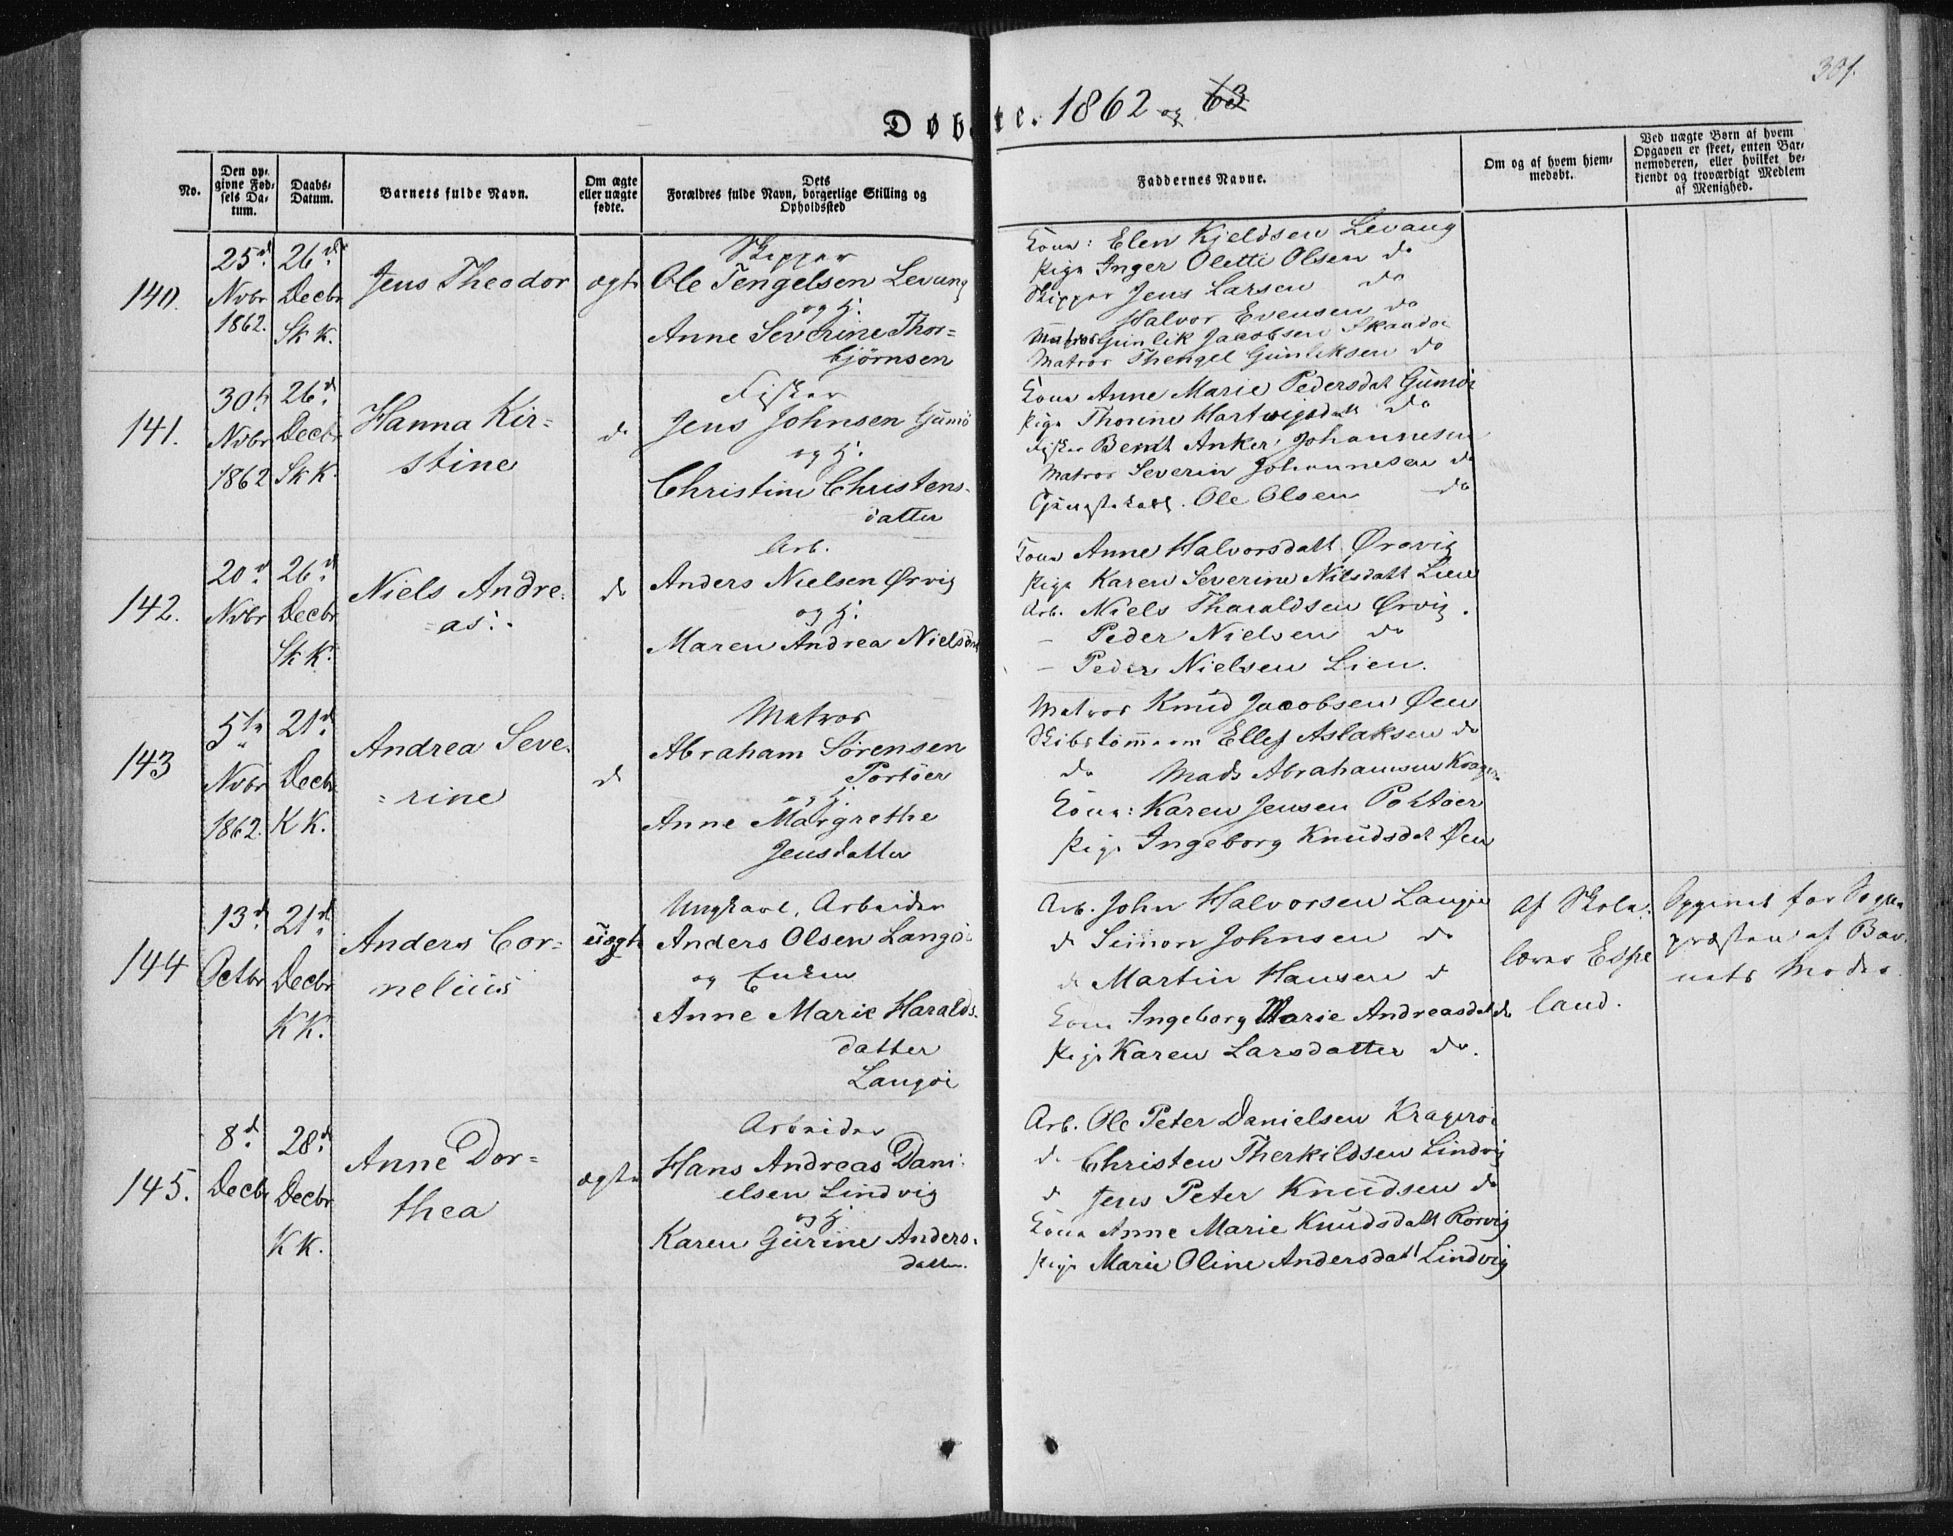 301.
Døbte. 1862 og 63
No.
Den op-
givne Fød-
sels Da-
tum.
Daabs-
Datum.
Barnets fulde Navn.
Om ægte
eller uægte
fødte.
Dets
Forældres fulde Navn, borgerlige Stilling og
Opholdssted
Faddernes Navne.
Om og af hvem hjem-
medøbt.
Ved uægte Børn af hvem
Opgaven er skeet, enten Bar-
nemoderen, eller hvilket be-
kjendt og troværdigt Medlem
af Menighed.
140.
25d.
Nvbr
1862.
26d.
Decbr
Sk K.
Jens Theodor
ægte
Skipper
Ole Tengelsen Levang
og H.
Anne Severine Thor=
bjørnsen
Kone: Elen Kjeldsen Levang
Pige Inger Olette Olsen do
Skipper Jens Larsen do
Halvor Evensen do
Matros Gunlik Jacobsen
Matros Thengel Gunliksen do
141.
30t.
Nvbr
1862
26d.
Decbr
Sk K.
Hanna Kir=
stine
do
Fisker
Jens Johnsen Gumø
og H.
Christine Christens-
datter
Kone Anne Marie Pedersdat Gumøi
Pige Thorine Hartvigsdatt do
Fisker Bernt Anker Johannesen
Matros Severin Johannesen do
Ole Olsen do
142.
20d.
Nvbr
26d.
Decbr
Sk K.
Niels Andre-
=as.
do
Arb.
Anders Nielsen Ørvig
og H.
Maren Andrea Nielsdat
Kone Anne Halvorsdatt Ørvig
Pige Karen Severine Nilsdatt Lien
Arb. Niels Tharaldsen Ørvig.
– Peder Nielsen do
– Peder Nielsen Lien.
143
5te
Nvbr
1862.
21d.
Decbr
K K.
Andrea Seve-
=rine
d
Matros
Abraham Sørensen
Portøer
og H.
Anne Margrethe
Jensdatter
Matros Knud Jacobsen Øen
Skibstømmerm Ellef Aslaksen do
do Mads Abrahamsen Kragerø
Kone: Karen Jensen Portøer
Pige Ingeborg Knudsdat Øen
144
13d.
Octbr
21d.
Decbr
K K.
Anders Cor=
nelius
uægte
Ungkarl, Arbeider
Anders Olsen Langøi
og Enken
Anne Marie Haralds-
datter
Langøi
Arb. John Halvorsen Langøi
d Simon Johnsen do
d Martin Hansen d
Kone Ingeborg Marie Andreasdat do
Pige Karen Larsdatter do.
Af Skole-
lærer Espe
land.
Opgivet for Sogne
præsten af Bar-
nets Moder.
145.
8d.
Decbr
28d.
Decbr
K K.
Anne Dor=
thea
ægte
Arbeider
Hans Andreas Dani-
elsen Lindvig
og H.
Karen Gurine Anders-
datter.
Arb. Ole Peter Danielsen Kragerøe
d. Christen Therkildsen Lindvig
d Jens Peter Knudsen do
Kone Anne Marie Knudsdatt Rørvig
Pige Marie Oline Andersdatt Lindvig